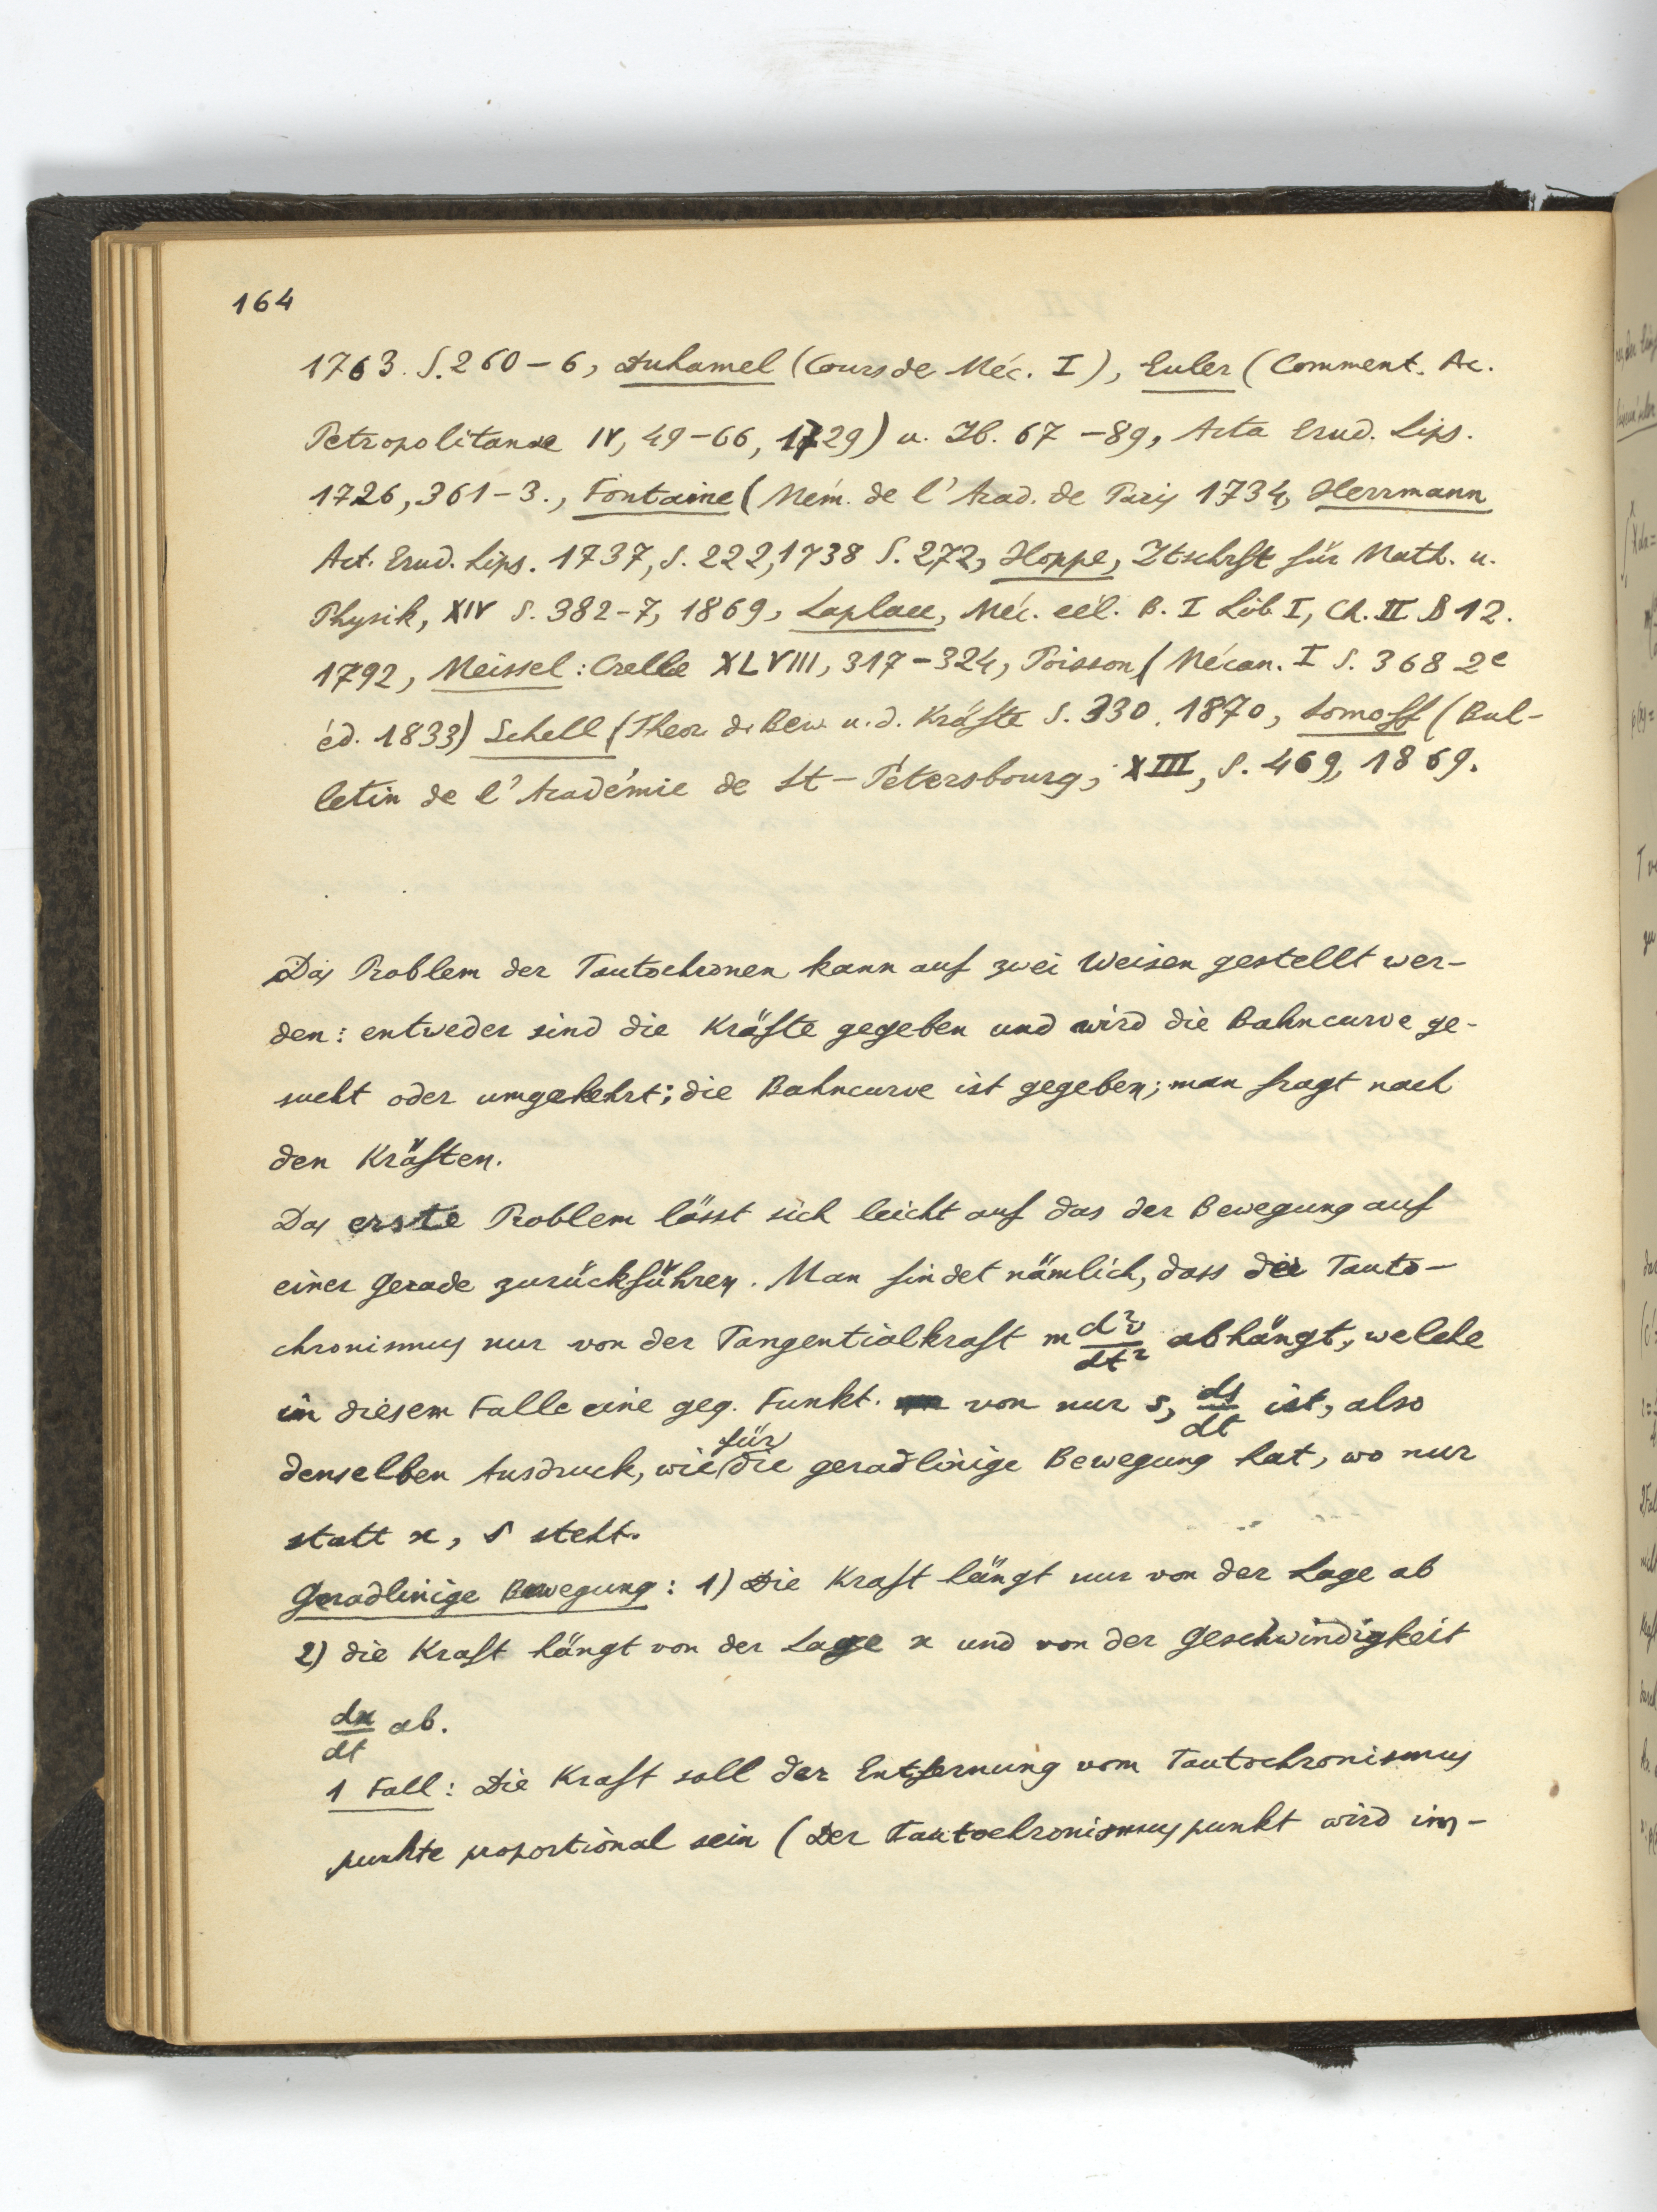 164
1763. S. 260-6, Duhamel (Cours de Méc. I), Euler (Comment. Ac.
Petropolitanae IV, 49-66, 1729) u. Ib. 67-89, Acta Erud. Lips.
1726, 361-3., Fontaine (Mém. de l'Acad. de Paris 1734, Herrmann
Act. Erud. Lips. 1737, S. 222, 1738 S. 272, Hoppe, Ztschrft für Math. u.
Physik, XIV S. 382-7, 1869, Laplace, Méc. cél. B. I Lib. I, Ch. II 12.
1792, Meissel: Crelle XLVIII, 317-324, Poisson (Mécan. I S. 368 2e
éd. 1833) Schell (Theor. d. Bew. u. d. Kräfte S. 330. 1870, Somoff (Bul-
letin de l'Académie de St-Pétersbourg, XIII, S. 469, 1869.
Das Problem der Tautochronen kann auf zwei Weisen gestellt wer-
den: entweder sind die Kräfte gegeben und wird die Bahncurve ge-
sucht oder umgekehrt; die Bahncurve ist gegeben; man fragt nach
den Kräften.
Das erste Problem lässt sich leicht auf das der Bewegung auf
einer Gerade zurückführen. Man findet nämlich, dass der Tauto-
chronismus nur von der Tangentialkraft m d²v/dt² abhängt, welche
in diesem Falle eine geg. Funkt. von nur s, ds/dt ist, also
denselben Ausdruck, wie für die geradlinige Bewegung hat, wo nur
statt x, s steht.
Geradlinige Bewegung: 1) Die Kraft hängt nur von der Lage ab
2) die Kraft hängt von der Lage x und von der Geschwindigkeit
dx/dt ab.
1 Fall: Die Kraft soll der Entfernung vom Tautochronismus
punkte proportional sein (Der Tautochronismuspunkt wird im-